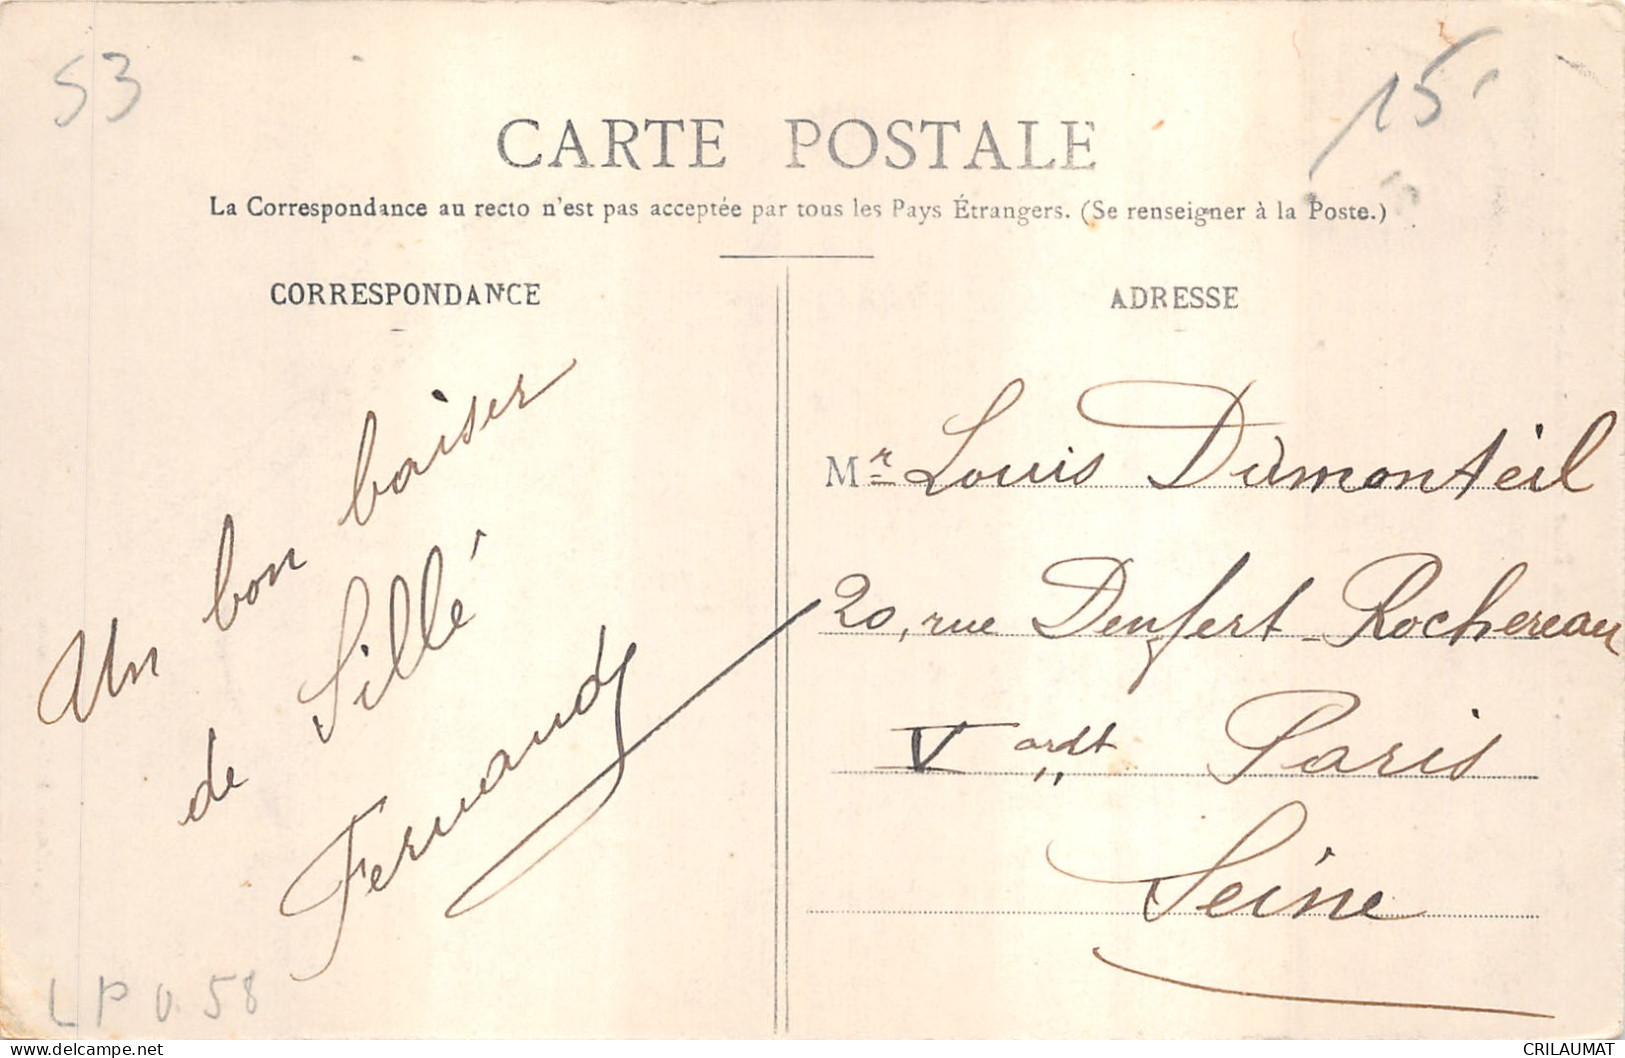 53
15
CARTE POSTALE
La Correspondance au recto n'est pas acceptée par tous les Pays Étrangers. (Se renseigner à la Poste.)
CORRESPONDANCE
Un bon baiser
de Sillé
Fernand
ADRESSE
Mr Louis Dumonteil
20, rue Denfert-Rochereau
V ardt Paris
Seine
LP V. 58
CRILAUMAT